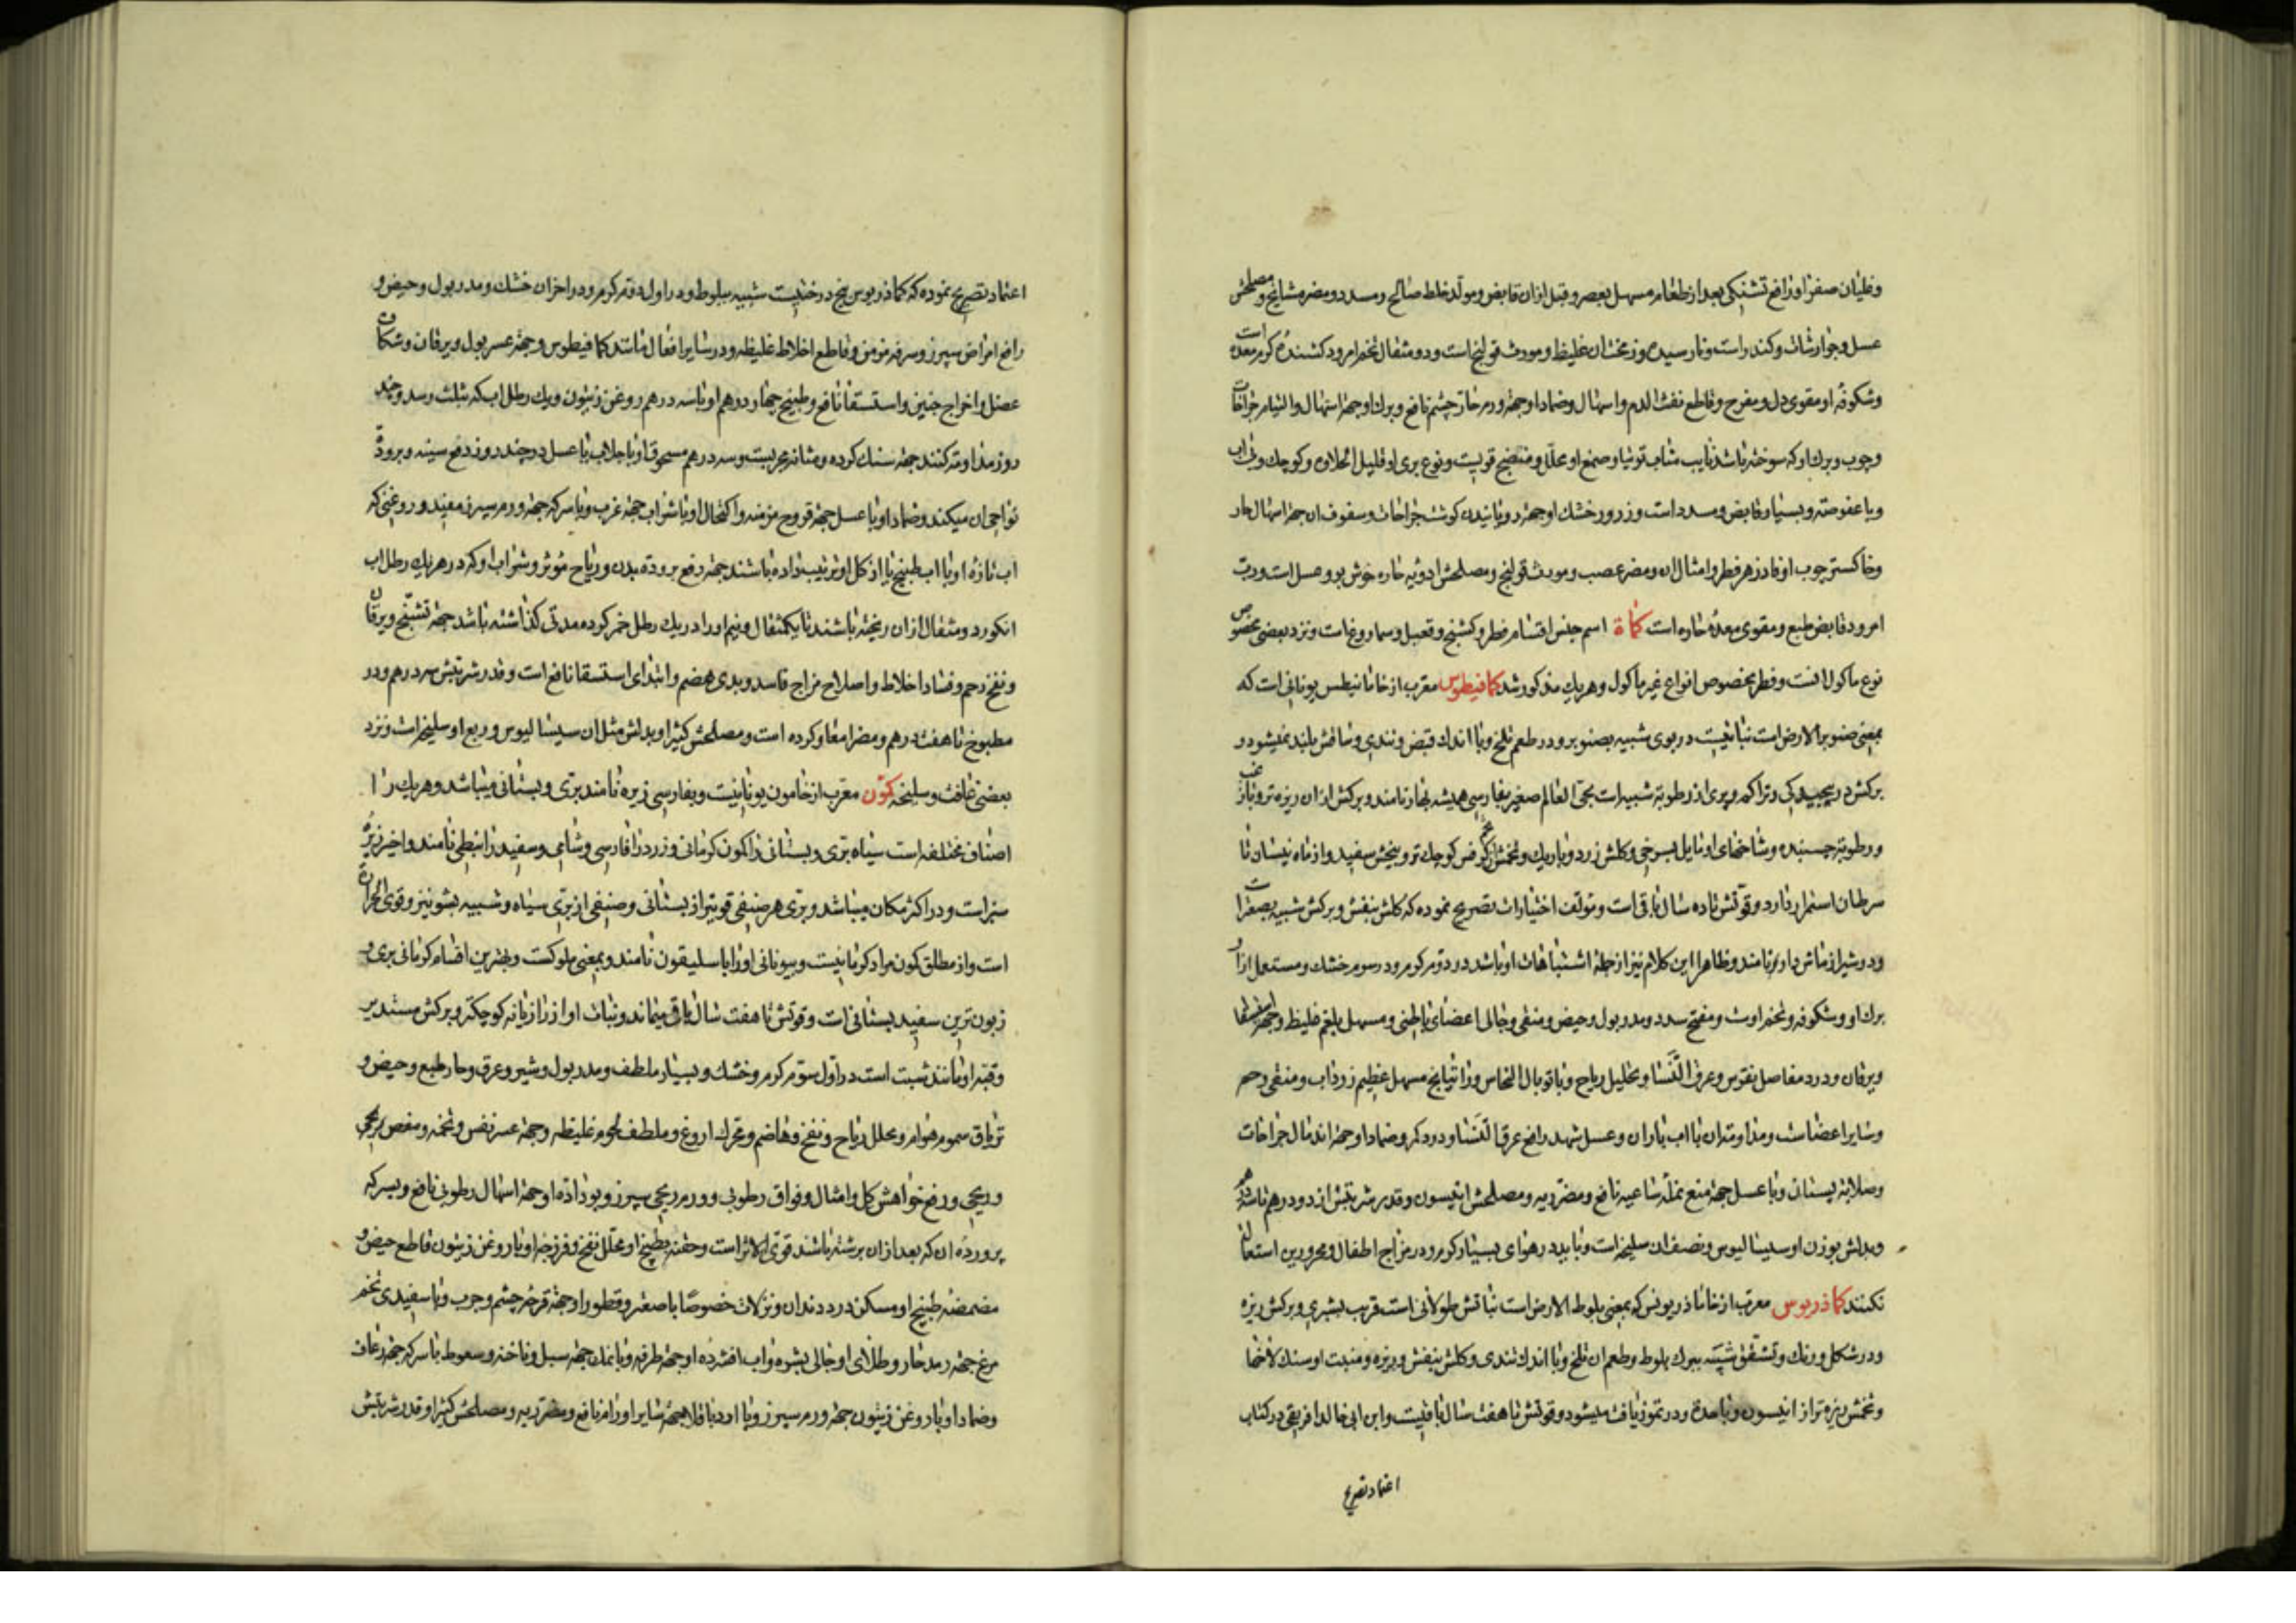 وغلیان صفرا و رافع تشنکی بعد از طعام مسهل بعصر و قبل ازان قابض و مولد خلط صالح و مسدد و مضر مشایخ و مصلحش
عسل و جوارشات و کندر است و نارسیده و زمخت ان غلیظ و مورث قولنج است و دو مثقال تخم امرود کشندهٔ کرم معده است
وشکوفهٔ او مقوی دل و مفرح و قاطع نفث الدم و اسهال و ضماد او جهة ورم حار چشم نافع و برک او جهة اسهال و التیام جراحات
و چوب و برک او که سوخته باشد نایب مناب توتیا و صمغ او محلل و منضج قویست و نوع بری او قلیل الحلاوة و کوچک و بی اب
و با عفوصة و بسیار قابض و مسدد است و زرور خشک او جهة رویانیدن کوشت جراحات و سفوف ان جهة اسهال حار
و خاکستر چوب او فادزهر فطر و امثال ان و مضر عصب و مورث قولنج و مصلحش ادویه حاره خوش بو و عسل است و رب
امرود قابض طبع و مقوی معدهٔ حاره است کماة اسم جنس اقسام فطر و کشنج و قعبل و سماروغ است و نزد بعضی مخصوص
نوع ماکول انست و فطر مخصوص انواع غیر ماکول و هریک مذکور شد کمافیطوس معرب از خامانیطس یونانی است که
بمعنی صنوبر الارض است نباتیست در بوی شبیه بصنوبر و در طعم تلخ و با اندک قبض و تندی و ساقش بلند نمیشود و
برکش در پیچیدکی و تراکم و پری از رطوبة شبیه است بحی العالم صغیر بفارسی همیشه بهار نامند و برکش ازان ریزه تر و با زغب
و رطوبة چسبنده و شاخهای او مایل بسرخی و کلش زرد و باریک و تخمش از تخم کرفس کوچک تر و بیخش سفید و از ماه نیسان تا
سرطان استمرار دارد و قوتش تا ده سال باقی است و مولف اختیارات تصریح نموده که کلش بنفش و برکش شبیه بصعتر است
و در شیراز ماش دارو نامند و ظاهرا این کلام نیز از جملهٔ اشتباهات او باشد در دوم کرم و در سوم خشک و مستعمل ازان
برک او و شکوفه و تخم اوست و مفتح سدد و مدر بول و حیض و منقی و جالی اعضای باطنی و مسهل بلغم غلیظ و جهة استسقا
و یرقان و درد مفاصل نقرس و عرق النسا و تحلیل ریاح و با توبال النحاس و راتیانج مسهل عظیم زرداب و منقی رحم
و سایر اعضاست و مداومة ان با اب باران و عسل شهد رافع عرق النسا و درد کمر و ضماد او جهة اندمال جراحات
و صلابة پستان و با عسل جهة منع نملهٔ ساعیه نافع و مضر ریه و مصلحش انیسون و قدر شربتش از دو درهم تا سه درهم
و بدلش بوزن او سیسالیوس و نصف ان سلیخه است و نباید در هوای بسیار کرم و در مزاج اطفال و محرورین استعمال
نکنند کماذریوس معرب از خاماذریونس که بمعنی بلوط الارض است نباتش طولانی است قریب بشبری و برکش ریزه
و در شکل و رنک و تشقق شبیه ببرک بلوط و طعم ان تلخ و با اندک تندی و کلش بنفش و ریزه و منبت او سنک لاخها
و تخمش ریزه تر از انیسون و با حدة و در تموز یافت میشود و قوتش تا هفت سال باقیست و ابن ابی خالد افریقی در کتاب
اعتماد تصریح
اعتماد تصریح نموده که کماذریوس بیخ درختیست شبیه ببلوط و در اول دوم کرم و در اخر ان خشک و مدر بول و حیض و
رافع امراض سپرز و سرفه مزمن و قاطع اخلاط غلیظه و در سایر افعال مانند کمافیطوس و جهة عسر بول و یرقان و شکاف
عضل و اخراج جنین و استسقا نافع و طبیخ چهار درهم او با سه درهم روغن زیتون و یک رطل اب که بثلث رسد و چند
روز مداومه کنند جهة سنک کرده و مثانه مجربست و سه درهم مسحوق او با جلاب یا عسل در چند روز دفع سینه و برودة
نواحی ان میکند و ضماد او با عسل جهة قروح مزمنه و اکتحال او با شراب جهة غرب و با سرکه جهة ورم سپرز مفید و روغنی که
اب تازه او یا اب طبیخ یا از کل او ترتیب داده باشند جهة رفع برودة بدن و ریاح مؤثر و شراب او که در هریک رطل اب
انکور دو مثقال ازان ریخته باشند یا یکمثقال و نیم او را در یک رطل خمر کرده مدتی کذاشته باشد جهة تشنج و یرقان
و نفخ رحم و فساد اخلاط و اصلاح مزاج فاسد و بدی هضم و ابتدای استسقا نافع است و قدر شربتش سه درهم و در
مطبوخ تا هفت درهم و مضر امعا و کرده است و مصلحش کتیرا و بدلش مثل ان سیسالیوس و ربع او سلیخه است و نزد
بعضی غافث و سلیخه کمون معرب از خامون یونانیست و بفارسی زیره نامند بری و بستانی میباشد و هریک را
اصناف مختلفه است سیاه بری و بستانی را کمون کرمانی و زرد را فارسی و شامی و سفید را نبطی نامند و اخیر زیره
سبز است و در اکثر مکان میباشد و بری هر صنفی قویتر از بستانی و صنفی از بری سیاه و شبیه بشونیز و قوی الحرارة
است و از مطلق کمون مراد کرمانیست و بیونانی او را باسلیقون نامند و بمعنی ملوکست و بهترین اقسام کرمانی بری و
زبون ترین سفید بستانی است و قوتش تا هفت سال باقی میماند و نبات او از رازیانه کوچکتر و برکش مستدیر
و قبهٔ او مانند شبت است در اول سوم کرم و خشک و بسیار ملطف و مدر بول و شیر و عرق و حار طبع و حیض و
تریاق سموم هوام و محلل ریاح و نفخ و هاضم و محرک اروغ و ملطف لحوم غلیظه و جهة عسر نفس و تخمه و مغص
و ریحی و رفع خواهش کل و امثال و فواق رطوبی و ورم ریحی سپرز و بو دادهٔ او جهة اسهال رطوبی نافع و بسرکه
پروردهٔ ان که بعد ازان برشته باشند قوی الاثر است و حقنه بطبیخ او محلل نفخ و فرزجهٔ او با روغن زیتون قاطع حیض و
مضمضهٔ طبیخ او مسکن درد دندان و نزلات خصوصًا با صعتر و قطور او جهة قرحه چشم و جرب و با سفیدی تخم
مرغ جهة رمد حار و طلای او جالی بشره و اب افشردهٔ او جهة طرفه و با نمک جهة سبل و ناخنه و سعوط با سرکه جهة رعاف
و ضماد او با روغن زیتون جهة ورم سپرز و با ارد باقلا جهة سایر اورام نافع و مضر ریه و مصلحش کتیرا و قدر شربتش